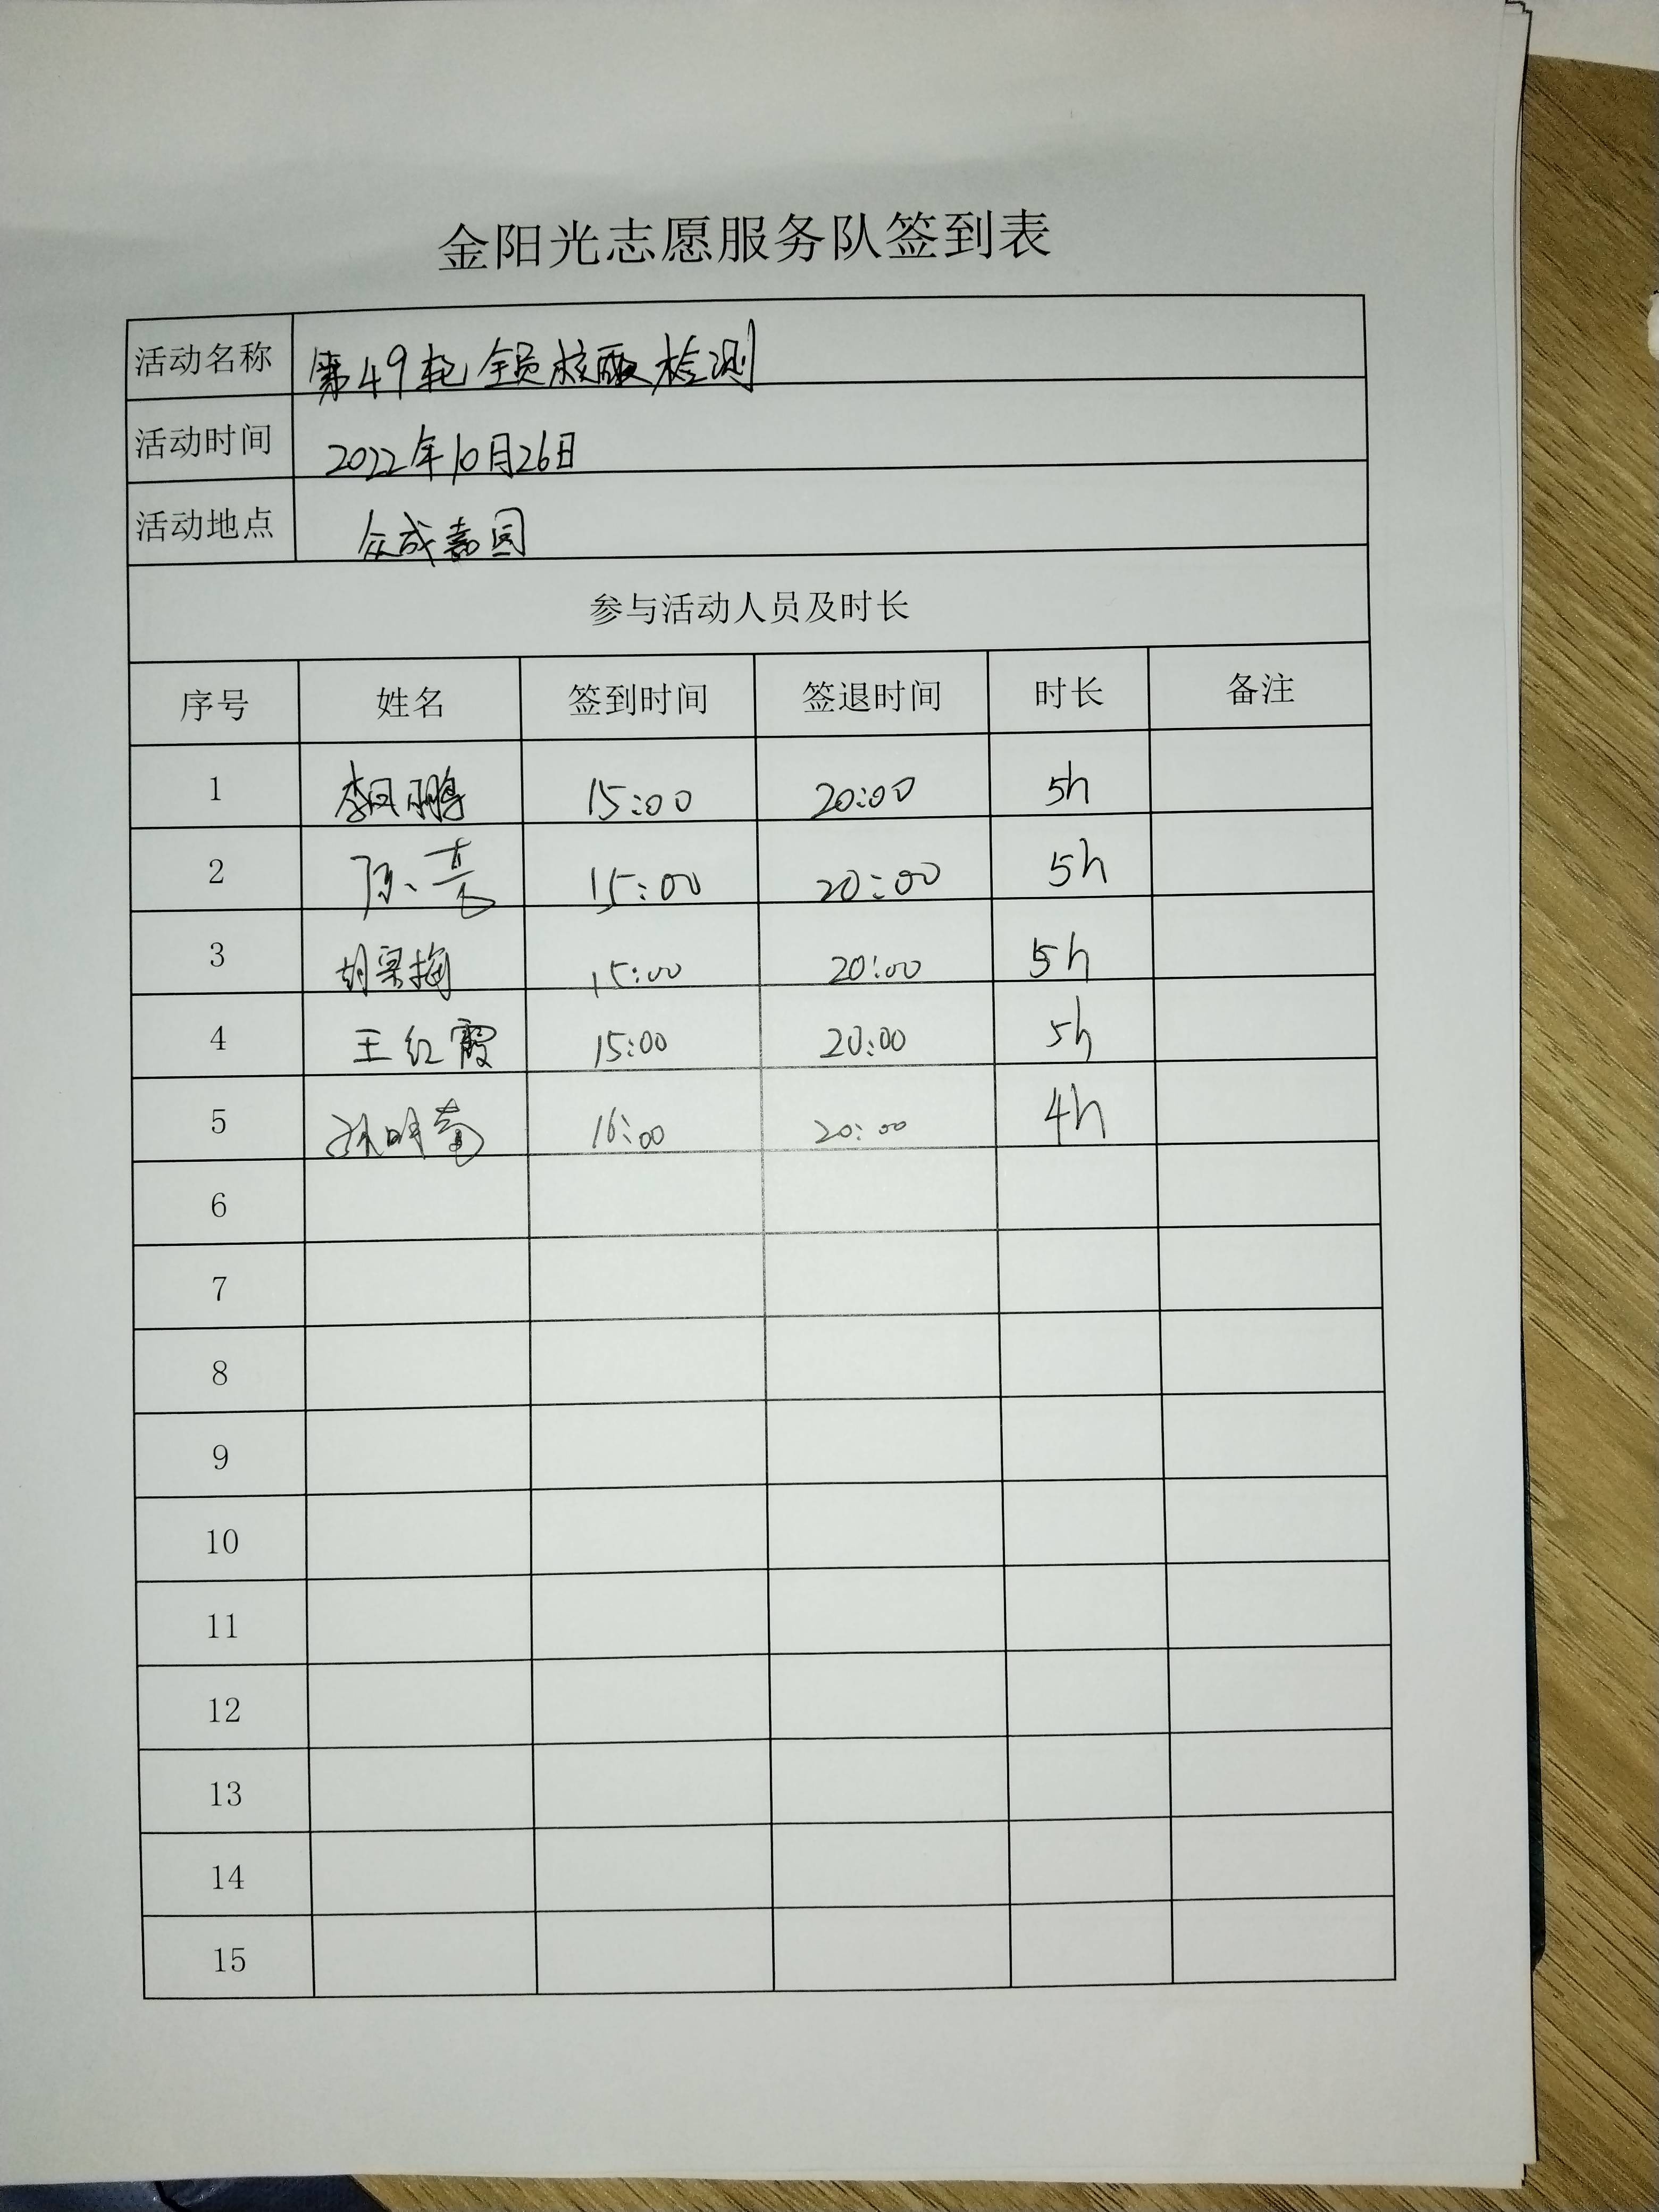 金阳光志愿服务队签到表
活动名称 第49轮全员核酸检测
活动时间 2022年10月26日
活动地点 众成嘉园
参与活动人员及时长
序号 姓名 签到时间 签退时间 时长 备注
1 李凤鹏 15:00 20:00 5h
2 陈亮 15:00 20:00 5h
3 胡 梅 15:00 20:00 5h
4 王红霞 15:00 20:00 5h
5 孙明 16:00 20:00 4h
6
7
8
9
10
11
12
13
14
15